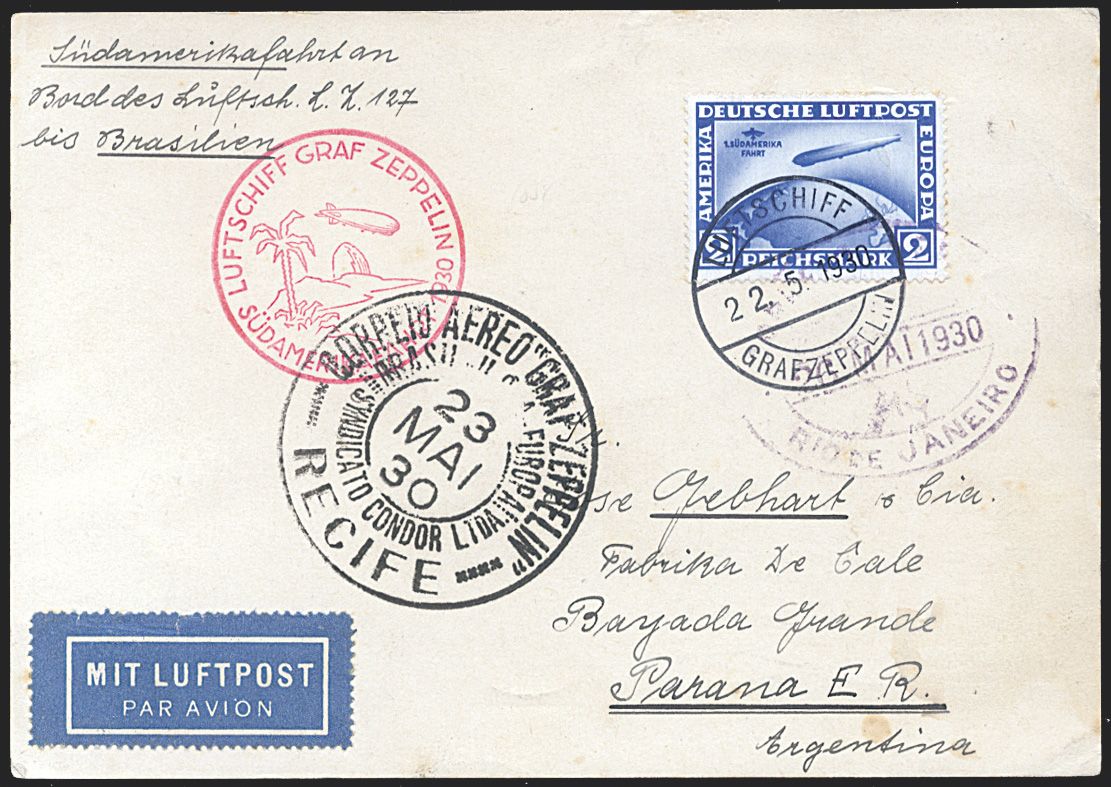 Südamerikafahrt an
Bord des Luftsch. L. Z. 127
bis Brasilien
DEUTSCHE LUFTPOST
AMERIKA
EUROPA
1. SÜDAMERIKA
FAHRT
2
REICHSMARK
2
LUFTSCHIFF
22. 5. 1930
GRAF ZEPPELIN
LUFTSCHIFF GRAF ZEPPELIN 1930
MAI 1930
RIO DE JANEIRO
CORREIO AEREO "GRAF ZEPPELIN"
SYNDICATO CONDOR LTDA.
23
MAI
30
RECIFE
Gebhart & Cia.
Fabrika De Cale
Bayada Grande
Parana E R.
Argentina
MIT LUFTPOST
PAR AVION